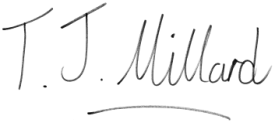 T. J. Millard